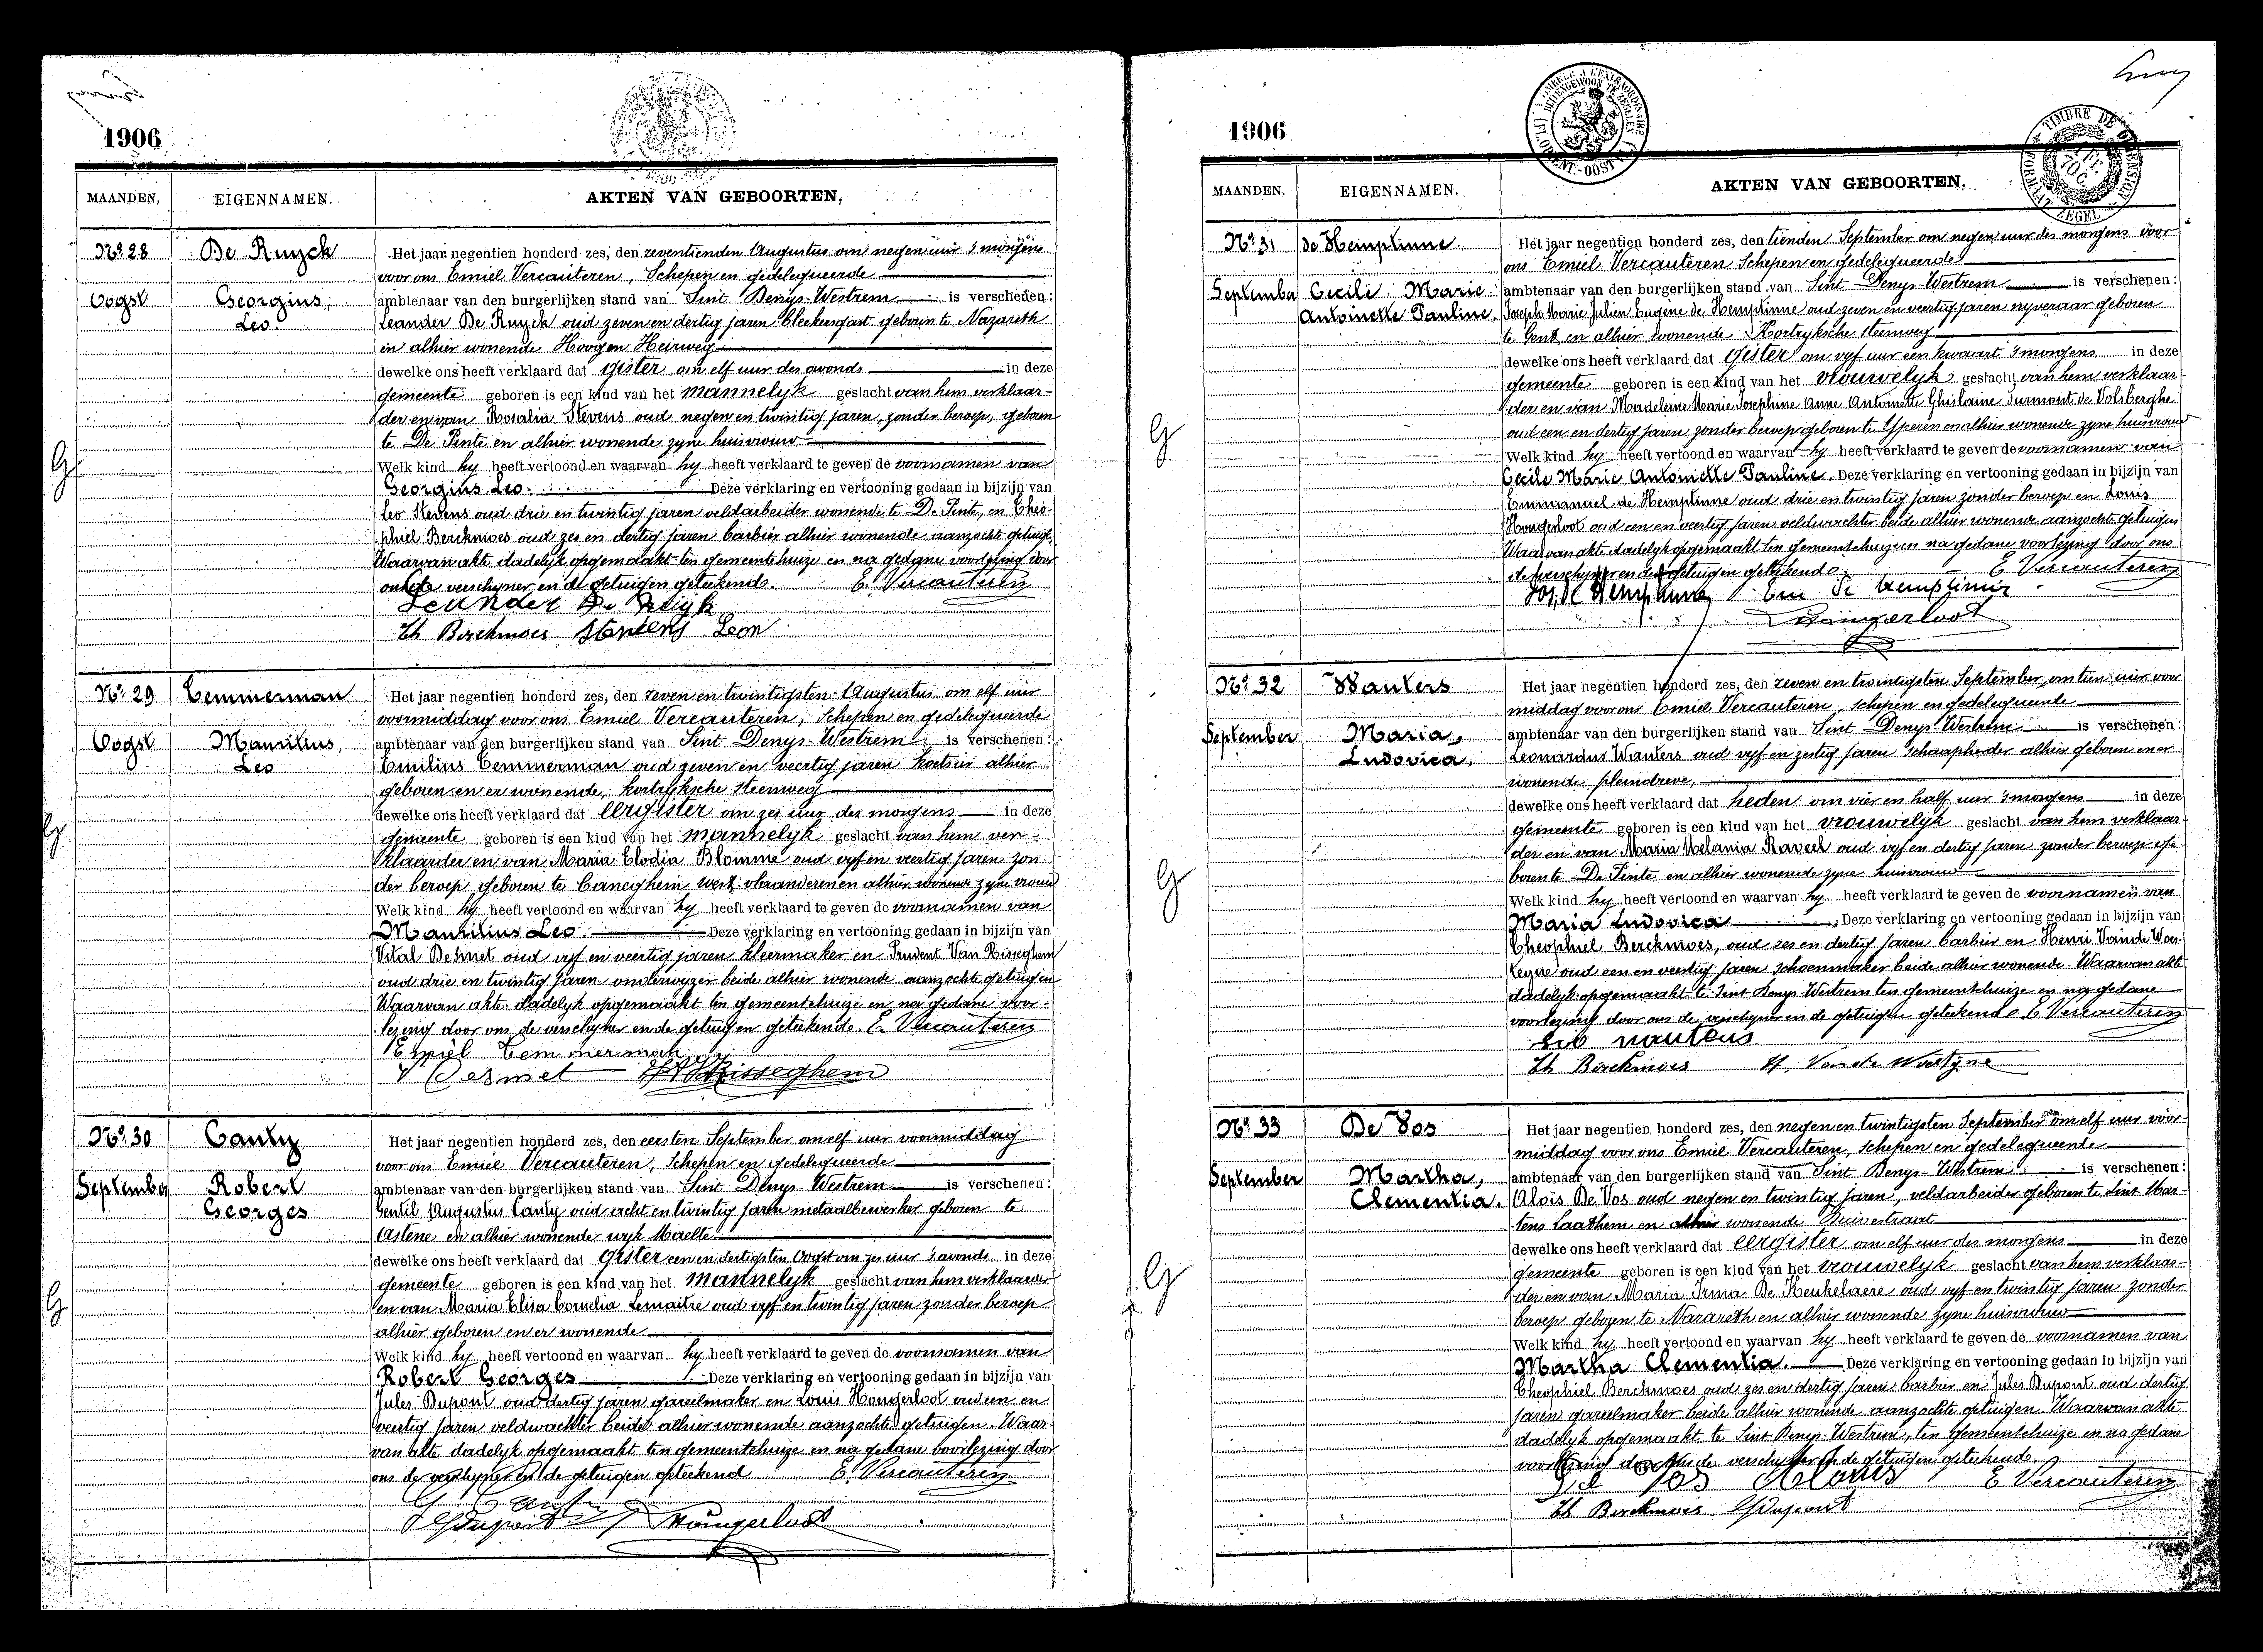 1906
MAANDEN.
EIGENNAMEN.
AKTEN VAN GEBOORTEN.
No. 28
De Ruyck
Oogst
Georgius,
Leo.
Het jaar negentien honderd zes, den zeventienden Augustus om negen uur 's morgens
voor ons Emiel Vercauteren, Schepen en gedelegueerde
ambtenaar van den burgerlijken stand van Sint Denys-Westrem is verschenen:
Leander De Ruyck oud zeven en dertig jaren bleekersgast geboren te Nazareth
en alhier wonende Hoogen Heirweg
dewelke ons heeft verklaard dat gister om elf uur des avonds in deze
gemeente geboren is een kind van het mannelyk geslacht van hem verklaar-
der en van Rosalia Stevens oud negen en twintig jaren, zonder beroep, geboren
te De Pinte en alhier wonende zyne huisvrouw
Welk kind hy heeft vertoond en waarvan hy heeft verklaard te geven de voornamen van
Georgius Leo. Deze verklaring en vertooning gedaan in bijzijn van
Leo Stevens oud drie en twintig jaren veldarbeider wonende te De Pinte, en Theo-
phiel Berckmoes oud zes en dertig jaren barbier alhier wonende aanzochte getuigen.
Waarvan akte dadelyk opgemaakt ten gemeentehuize en na gedane voorlezing door
ons de verschyner en de getuigen geteekend. E. Vercauteren
Leander De Ruyck
Th Berckmoes Stevens Leon
No. 29
Temmerman
Oogst
Mauritius,
Leo
Het jaar negentien honderd zes, den zeven en twintigsten Augustus om elf uur
voormiddag voor ons Emiel Vercauteren, Schepen en gedelegueerde
ambtenaar van den burgerlijken stand van Sint Denys-Westrem is verschenen:
Emilius Temmerman oud zeven en veertig jaren koetsier alhier
geboren en er wonende, kortryksche steenweg
dewelke ons heeft verklaard dat eergister om zes uur des morgens in deze
gemeente geboren is een kind van het mannelyk geslacht van hem ver-
klaarder en van Maria Elodia Blomme oud vyf en veertig jaren zon-
der beroep geboren te Caneghem west vlaanderen en alhier wonende zyne vrouw
Welk kind hy heeft vertoond en waarvan hy heeft verklaard te geven de voornamen van
Mauritius Leo Deze verklaring en vertooning gedaan in bijzijn van
Vital Desmet oud vyf en veertig jaren kleermaker en Prudent Van Risseghem
oud drie en twintig jaren onderwyzer beide alhier wonende aanzochte getuigen
Waarvan akte dadelyk opgemaakt ten gemeentehuize en na gedane voor-
lezing door ons de verschyner en de getuigen geteekend. E. Vercauteren
Emiel Temmerman
V Desmet Risseghem
No. 30
Canty
September
Robert
Georges
Het jaar negentien honderd zes, den eersten September om elf uur voormiddag
voor ons Emiel Vercauteren, Schepen en gedelegueerde
ambtenaar van den burgerlijken stand van Sint Denys-Westrem is verschenen:
Gentil Augustus Canty oud acht en twintig jaren metaalbewerker geboren te
Astene en alhier wonende wyk Maelte
dewelke ons heeft verklaard dat gister een en dertigsten Oogst om zes uur 's avonds in deze
gemeente geboren is een kind van het mannelyk geslacht van hem verklaarder
en van Maria Elisa Cornelia Lemaitre oud vyf en twintig jaren zonder beroep
alhier geboren en er wonende
Welk kind hy heeft vertoond en waarvan hy heeft verklaard te geven de voornamen van
Robert Georges Deze verklaring en vertooning gedaan in bijzijn van
Jules Dupont oud dertig jaren gareelmaker en Louis Hongerloot oud een en
veertig jaren veldwachter beide alhier wonende aanzochte getuigen. Waar-
van akte dadelyk opgemaakt ten gemeentehuize en na gedane voorlezing door
ons de verschyner en de getuigen geteekend E. Vercauteren
G Canty
Dupont Hongerloot
1906
MAANDEN.
EIGENNAMEN.
AKTEN VAN GEBOORTEN.
TIMBRE DE DIMENSION
FORMAAT ZEGEL
No. 31
de Hemptinne
September
Cecile Marie
Antoinette Pauline.
Het jaar negentien honderd zes, den tienden September om negen uur des morgens voor
ons Emiel Vercauteren Schepen en gedelegueerde
ambtenaar van den burgerlijken stand van Sint Denys-Westrem is verschenen:
Joseph Marie Julien Eugène de Hemptinne oud zeven en veertig jaren nyveraar geboren
te Gent en alhier wonende Kortryksche steenweg
dewelke ons heeft verklaard dat gister om vyf uur een kwaart 's morgens in deze
gemeente geboren is een kind van het vrouwelyk geslacht van hem verklaar-
der en van Madeleine Marie Josephine Anne Antoinette Ghislaine Surmont de Volsberghe
oud een en dertig jaren zonder beroep geboren te Yperen en alhier wonende zyne huisvrouw
Welk kind hy heeft vertoond en waarvan hy heeft verklaard te geven de voornamen van
Cecile Marie Antoinette Pauline. Deze verklaring en vertooning gedaan in bijzijn van
Emmanuel de Hemptinne oud drie en twintig jaren zonder beroep en Louis
Hongerloot oud een en veertig jaren veldwachter beide alhier wonende aanzochte getuigen
Waarvan akte dadelyk opgemaakt ten gemeentehuize en na gedane voorlezing door ons
de verschyner en de getuigen geteekend. E Vercauteren
Jos. de Hemptinne Em de Hemptinne
Hongerloot
No. 32
Wauters
September
Maria,
Ludovica.
Het jaar negentien honderd zes, den zeven en twintigsten September, om tien uur voor
middag voor ons Emiel Vercauteren, schepen en gedelegueerde
ambtenaar van den burgerlijken stand van Sint Denys-Westrem is verschenen:
Leonardus Wauters oud vyf en zestig jaren schaapherder alhier geboren en er
wonende pleindreve,
dewelke ons heeft verklaard dat heden om vier en half uur 's morgens in deze
gemeente geboren is een kind van het vrouwelyk geslacht van hem verklaar-
der en van Maria Melania Raveel oud vyf en dertig jaren zonder beroep ge-
boren te De Pinte en alhier wonende zyne huisvrouw
Welk kind hy heeft vertoond en waarvan hy heeft verklaard te geven de voornamen van
Maria Ludovica Deze verklaring en vertooning gedaan in bijzijn van
Theophiel Berckmoes, oud zes en dertig jaren barbier en Henri Van de Woes-
teyne oud een en veertig jaren schoenmaker beide alhier wonende. Waarvan akte
dadelyk opgemaakt te Sint Denys-Westrem ten gemeentehuize en na gedane
voorlezing door ons de verschyner en de getuigen geteekend E Vercauteren
Th Berckmoes H. Van de Woestyne
No. 33
De Vos
September
Martha,
Clementia.
Het jaar negentien honderd zes, den negen en twintigsten September om elf uur voor-
middag voor ons Emiel Vercauteren, schepen en gedelegueerde
ambtenaar van den burgerlijken stand van Sint Denys-Westrem is verschenen:
Aloïs De Vos oud negen en twintig jaren, veldarbeider geboren te Sint Mar-
tens Laathem en alhier wonende Duivestraat
dewelke ons heeft verklaard dat eergister om elf uur des morgens in deze
gemeente geboren is een kind van het vrouwelyk geslacht van hem verklaar-
der en van Maria Irma De Keukelaere oud vyf en twintig jaren zonder
beroep geboren te Nazareth en alhier wonende zyne huisvrouw
Welk kind hy heeft vertoond en waarvan hy heeft verklaard te geven de voornamen van
Martha Clementia. Deze verklaring en vertooning gedaan in bijzijn van
Theophiel Berckmoes oud zes en dertig jaren barbier en Jules Dupont oud dertig
jaren gareelmaker beide alhier wonende aanzochte getuigen. Waarvan akte
dadelyk opgemaakt te Sint Denys-Westrem, ten gemeentehuize en na gedane
voorlezing door ons de verschyner en de getuigen geteekend.
De Vos Aloïs E Vercauteren
Th Berckmoes Dupont